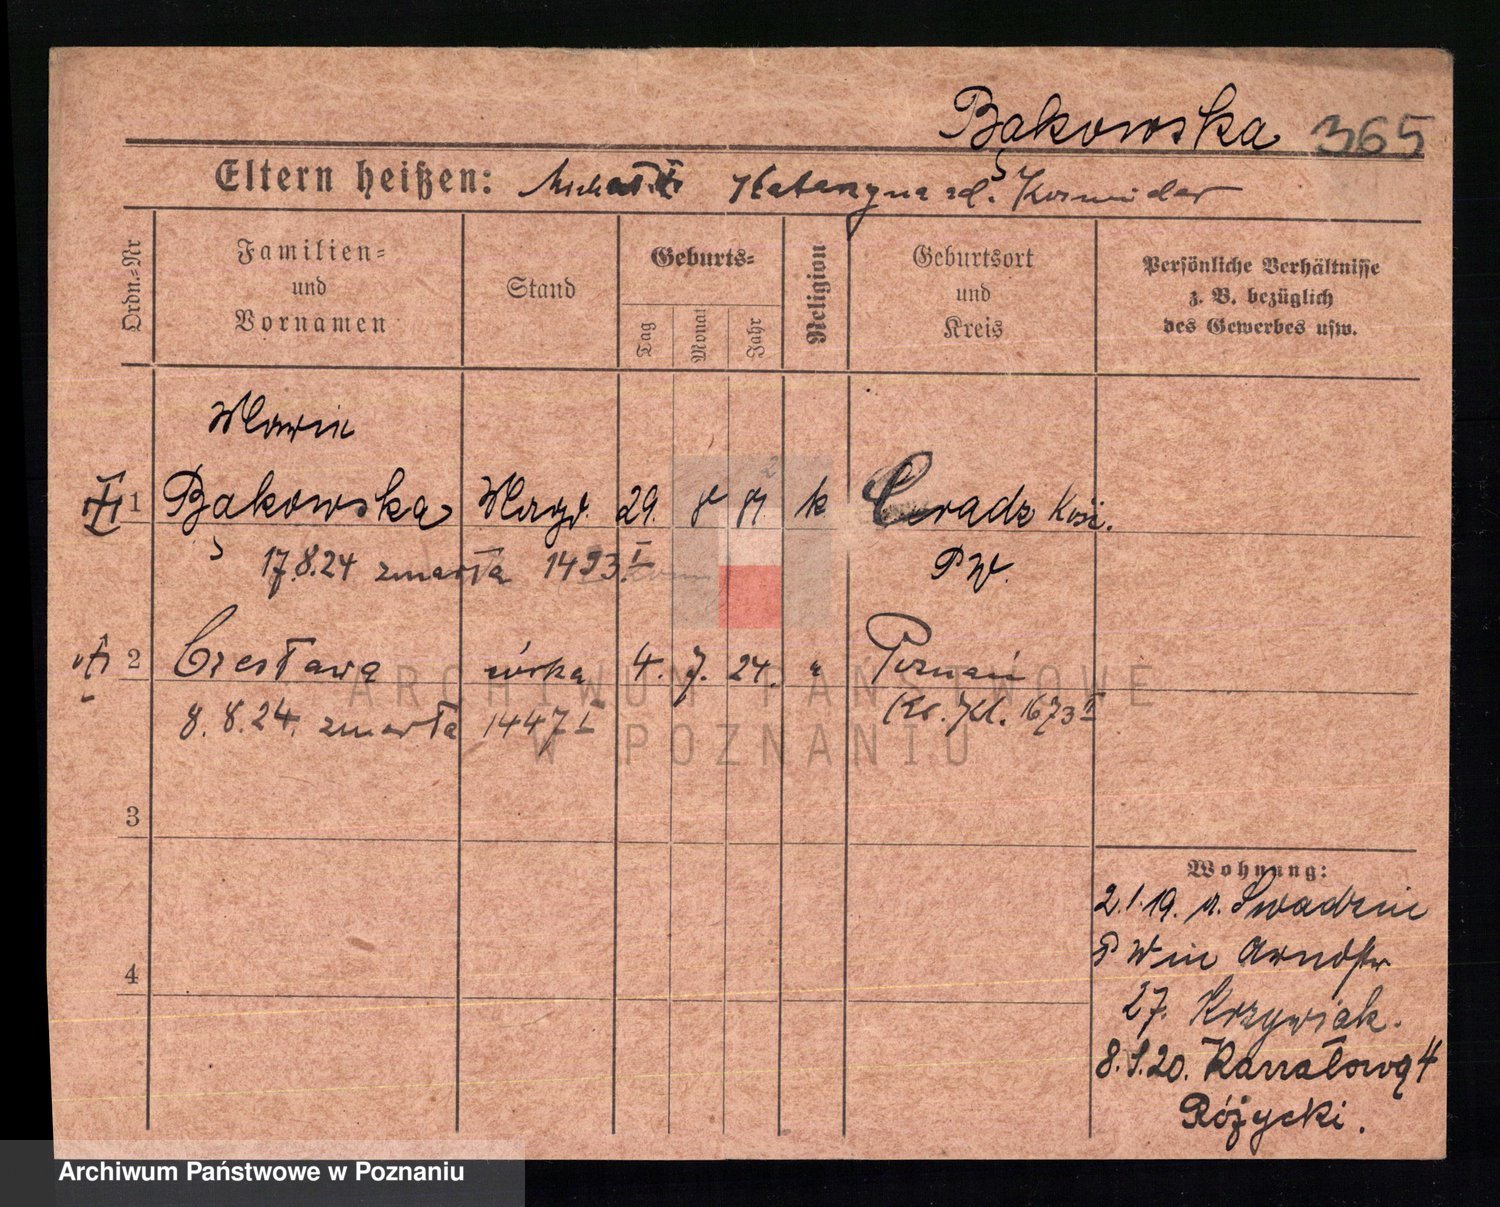 Bąkowska 365
Eltern heißen: Michał † Katarzyna zd. Kosmider
Ordn.-Nr
Familien- und Vornamen
Stand
Geburts-
Tag
Monat
Jahr
Religion
Geburtsort und Kreis
Persönliche Verhältnisse z. B. bezüglich des Gewerbes usw.
Maria
1 Bąkowska Magd. 29. k Ceradz Koś.
17.8.24 zmarła 1493 I
P W.
2 Czesława córka 4. 7. 24. " Poznań
8. 8. 24. zmarła 1447 I Kr. Kl. 1673 II
3
4
Wohnung:
2.1.19. v. Swadzim
P W in Arndstr
27. Krzywiak.
8.1.20. Kanałowa 4
Różycki.
ARCHIWUM PAŃSTWOWE
W POZNANIU
Archiwum Państwowe w Poznaniu